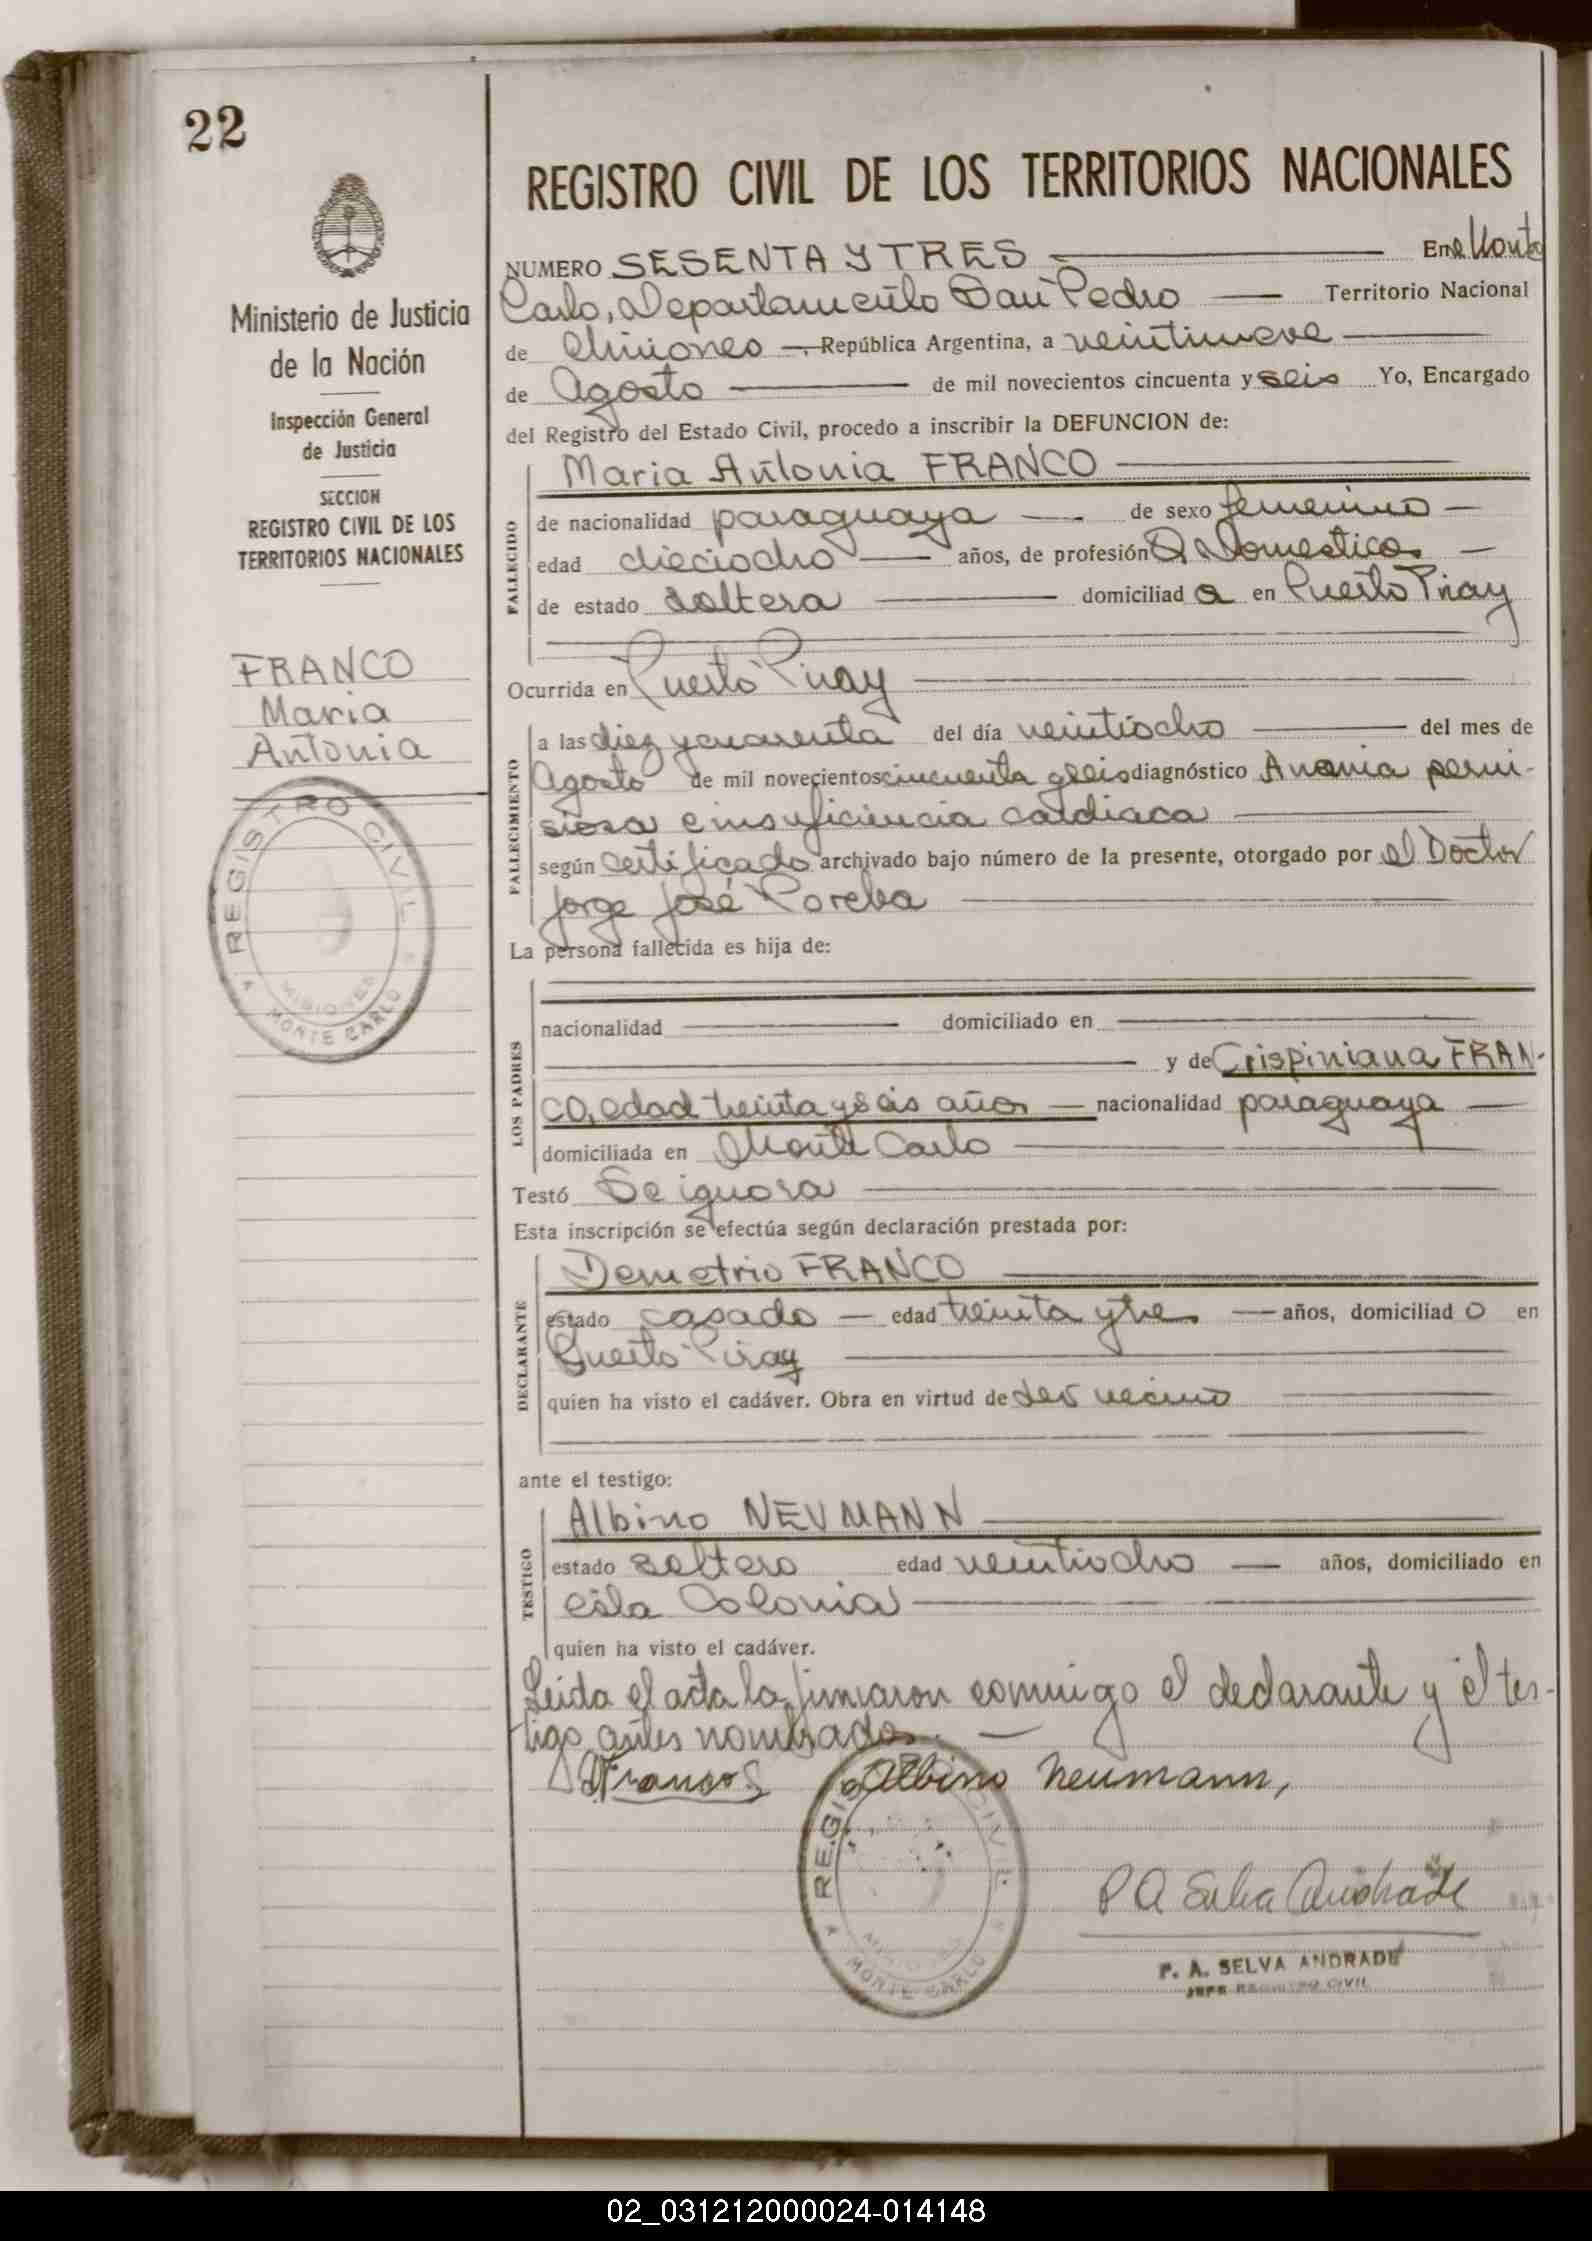 22
Ministerio de Justicia
de la Nación
Inspección General
de Justicia
SECCION
REGISTRO CIVIL DE LOS
TERRITORIOS NACIONALES
FRANCO
Maria
Antonia
REGISTRO CIVIL
MISIONES
MONTE CARLO
REGISTRO CIVIL DE LOS TERRITORIOS NACIONALES
NUMERO SESENTA Y TRES En Monte
Carlo, Departamento San Pedro Territorio Nacional
de Misiones República Argentina, a veintinueve
de Agosto de mil novecientos cincuenta y seis Yo, Encargado
del Registro del Estado Civil, procedo a inscribir la DEFUNCION de:
FALLECIDO
Maria Antonia FRANCO
de nacionalidad paraguaya de sexo femenino
edad dieciocho años, de profesión Q Domesticos
de estado soltera domiciliad a en Puerto Piray
Ocurrida en Puerto Piray
FALLECIMIENTO
a las diez y cuarenta del día veintiocho del mes de
Agosto de mil novecientos cincuenta y seis diagnóstico Anemia perni-
siosa e insuficiencia cardiaca
según certificado archivado bajo número de la presente, otorgado por el Doctor
Jorge José Poreba
La persona fallecida es hija de:
LOS PADRES
nacionalidad domiciliado en
y de Crispiniana FRAN-
CO, edad treinta y seis años nacionalidad paraguaya
domiciliada en Monte Carlo
Testó Se ignora
Esta inscripción se efectúa según declaración prestada por:
DECLARANTE
Demetrio FRANCO
estado casado edad treinta y tres años, domiciliad o en
Puerto Piray
quien ha visto el cadáver. Obra en virtud de ser vecino
ante el testigo:
TESTIGO
Albino NEUMANN
estado soltero edad veintiocho años, domiciliado en
esta Colonia
quien ha visto el cadáver.
Leida el acta la firmaron conmigo el declarante y el tes-
tigo antes nombrados.
DFranco Albino Neumann,
REGISTRO CIVIL
MISIONES
MONTE CARLO
P A Selva Andrade
P. A. SELVA ANDRADE
JEFE REGISTRO CIVIL
02_031212000024-014148